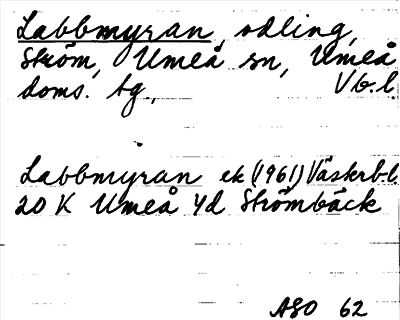 Labbmyran, odling,
Ström, Umeå sn, Umeå
doms. tg, Vb.l.
Labbmyran ek (1961) Västerb.l.
20 K Umeå 4d Strömbäck
ASO 62